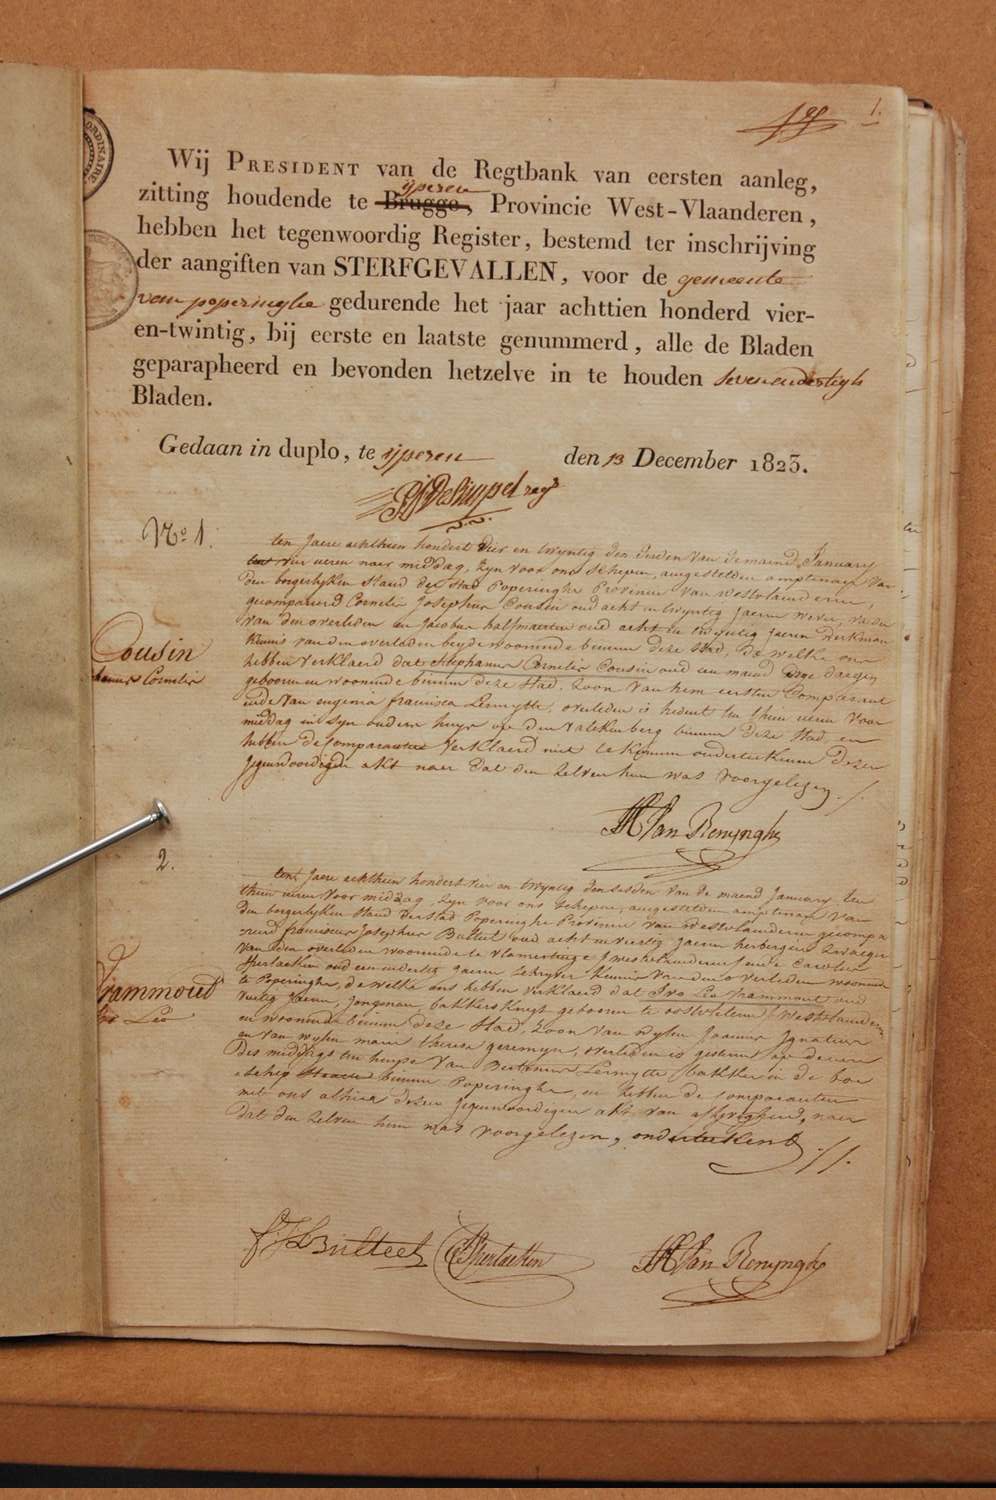 1.
ORDINAIRE
Wij PRESIDENT van de Regtbank van eersten aanleg,
ijperen
zitting houdende te Brugge, Provincie West-Vlaanderen,
hebben het tegenwoordig Register, bestemd ter inschrijving
der aangiften van STERFGEVALLEN, voor de gemeente
van poperinghe gedurende het jaar achttien honderd vier-
en-twintig, bij eerste en laatste genummerd, alle de Bladen
geparapheerd en bevonden hetzelve in te houden sevenendertigh
Bladen.
Gedaan in duplo, te ijperen den 13 December 1823.
No 1.
ten Jaere achthien hondert vier en twyntig den Eersten van de maend January
ten vier ueren naer middag, zyn voor ons schepen, aengestelden amptenaer van
den borgerlyken stand der stad Poperinghe Provincie van westvlaenderen,
gecompareerd Cornelis Josephus Cousin oud acht en twyntig Jaeren wever, vader
van den overleden en Jacobus halfmaerten oud acht en twyntig Jaeren werkman
kennis van den overleden beyde woonende binnen deze stad, de welke ons
hebben verklaerd dat Stephanus Cornelis Cousin oud een maend dry daegen
geboren en woonende binnen deze stad, zoon van hem eersten Comparant
ende van eugenia francisca Lermytte, overleden is heden ten thien ueren voor
middag in syn ouders huys op den valkenberg binnen deze stad, en
hebben de comparanten verklaerd niet te konnen onderteekenen dezen
Jegenwoordigen akt naer dat den zelven hun was voorgelezen ./
Cousin
Cornelis
M Van Renynghe
2.
ten Jaere achthien hondert vier en twyntig den sesden van de maend January ten
thien ueren voor middag, zyn voor ons schepen, aengestelden amptenaer van
den borgerlyken stand der stad Poperinghe Provincie van westvlaenderen gecompa
reerd franciscus Josephus Bulteel oud acht en veertig Jaeren herbergier zwaeger
van den overleden woonende te vlamertinge (westvlaenderen) ende Carolus
Sterlaeken oud een en dertig Jaeren schryver kennis van den overleden woonende
te Poperinghe, de welke ons hebben verklaerd dat Ivo Leo frammout oud
veertig Jaeren, Jongman, bakkersknegt geboren te oostvleteren (westvlaenderen)
en woonende binnen deze stad, zoon van wylen Joannes Ignatius
en van wylen marie theresia geremyn, overleden is gisteren op de ure
des middags ten huyse van Lermytte, bakker in de boe
schep straete binnen Poperinghe, en hebben de comparanten
met ons alhier dezen Jegenwoordigen akt van naer
dat den zelven hun was voorgelezen, onderteekent ./.
frammout
Leo
F J Bulteel
C Sterlaeken
M Van Renynghe